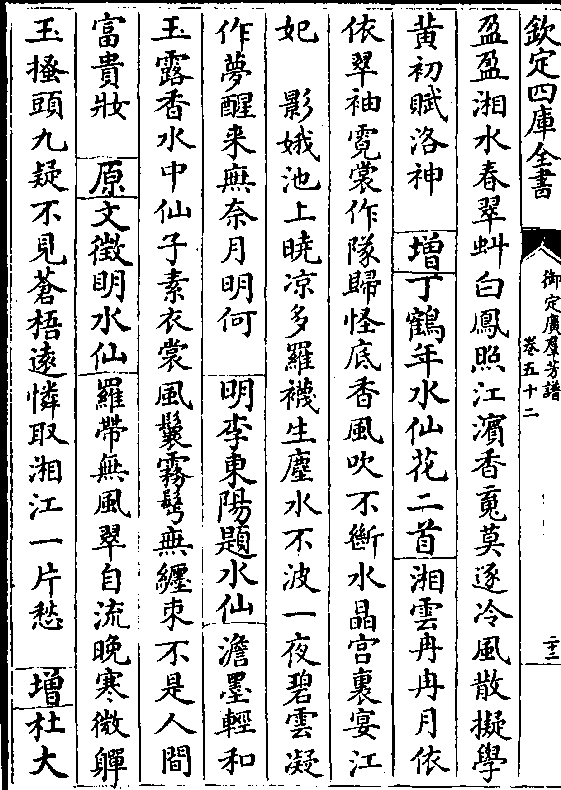 欽定四庫全書
御定廣羣芳譜
卷五十二
二十二
盈盈湘水春翠虬白鳳照江濱香䰟莫逐冷風散擬學
黃初賦洛神　增丁鶴年水仙花二首　湘雲冉冉月依
依翠袖霓裳作隊歸怪底香風吹不斷水晶宫裏宴江
妃　影娥池上曉凉多羅襪生塵水不波一夜碧雲凝
作夢醒来無奈月明何　明李東陽題水仙　澹墨輕和
玉露香水中仙子素衣裳風鬟霧鬢無纏束不是人間
富貴妝　原文徵明水仙　羅帶無風翠自流晚寒微嚲
玉搔頭九疑不見蒼梧遠憐取湘江一片愁　增杜大